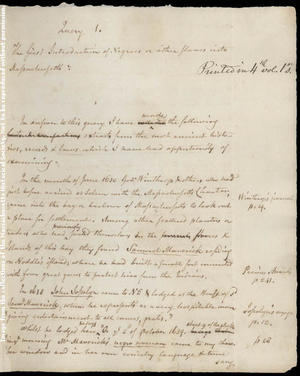 Query 1.
The first Introduction of Negroes or other Slaves into
Massachusetts.
Printed in 4th vol. p 3.
In answer to this query I have made the following
extracts from the most ancient histo-
ries, records & laws, which I have had opportunity of
examining.
In the month of June 1630 Govr Winthrop & others, who had
just before arrived at Salem with the Massachusetts Charter,
came into the bay or harbour of Massachusetts to look out
a place for settlement. Among other scattered planters or
traders who had seated themselves in the shores &
Islands of this bay they found Samuel Maverick residing
on Noddle's Island, where he had built a small fort mounted
with four great guns to protect him from the Indians.
Winthrop's journal
p.
In 1638 John Josselyn came to N E & lodged at the House of
Saml Maverick, whom he represents as a very hospitable man
giving entertainment to all comers, gratis.
Josselyn's voyage
p. 12.
Whilst he lodged here, being ye 2 of October 1639,
morning Mr Maverick's negro woman came to my cham-
ber window and in her own country language & tune
sang
p 28